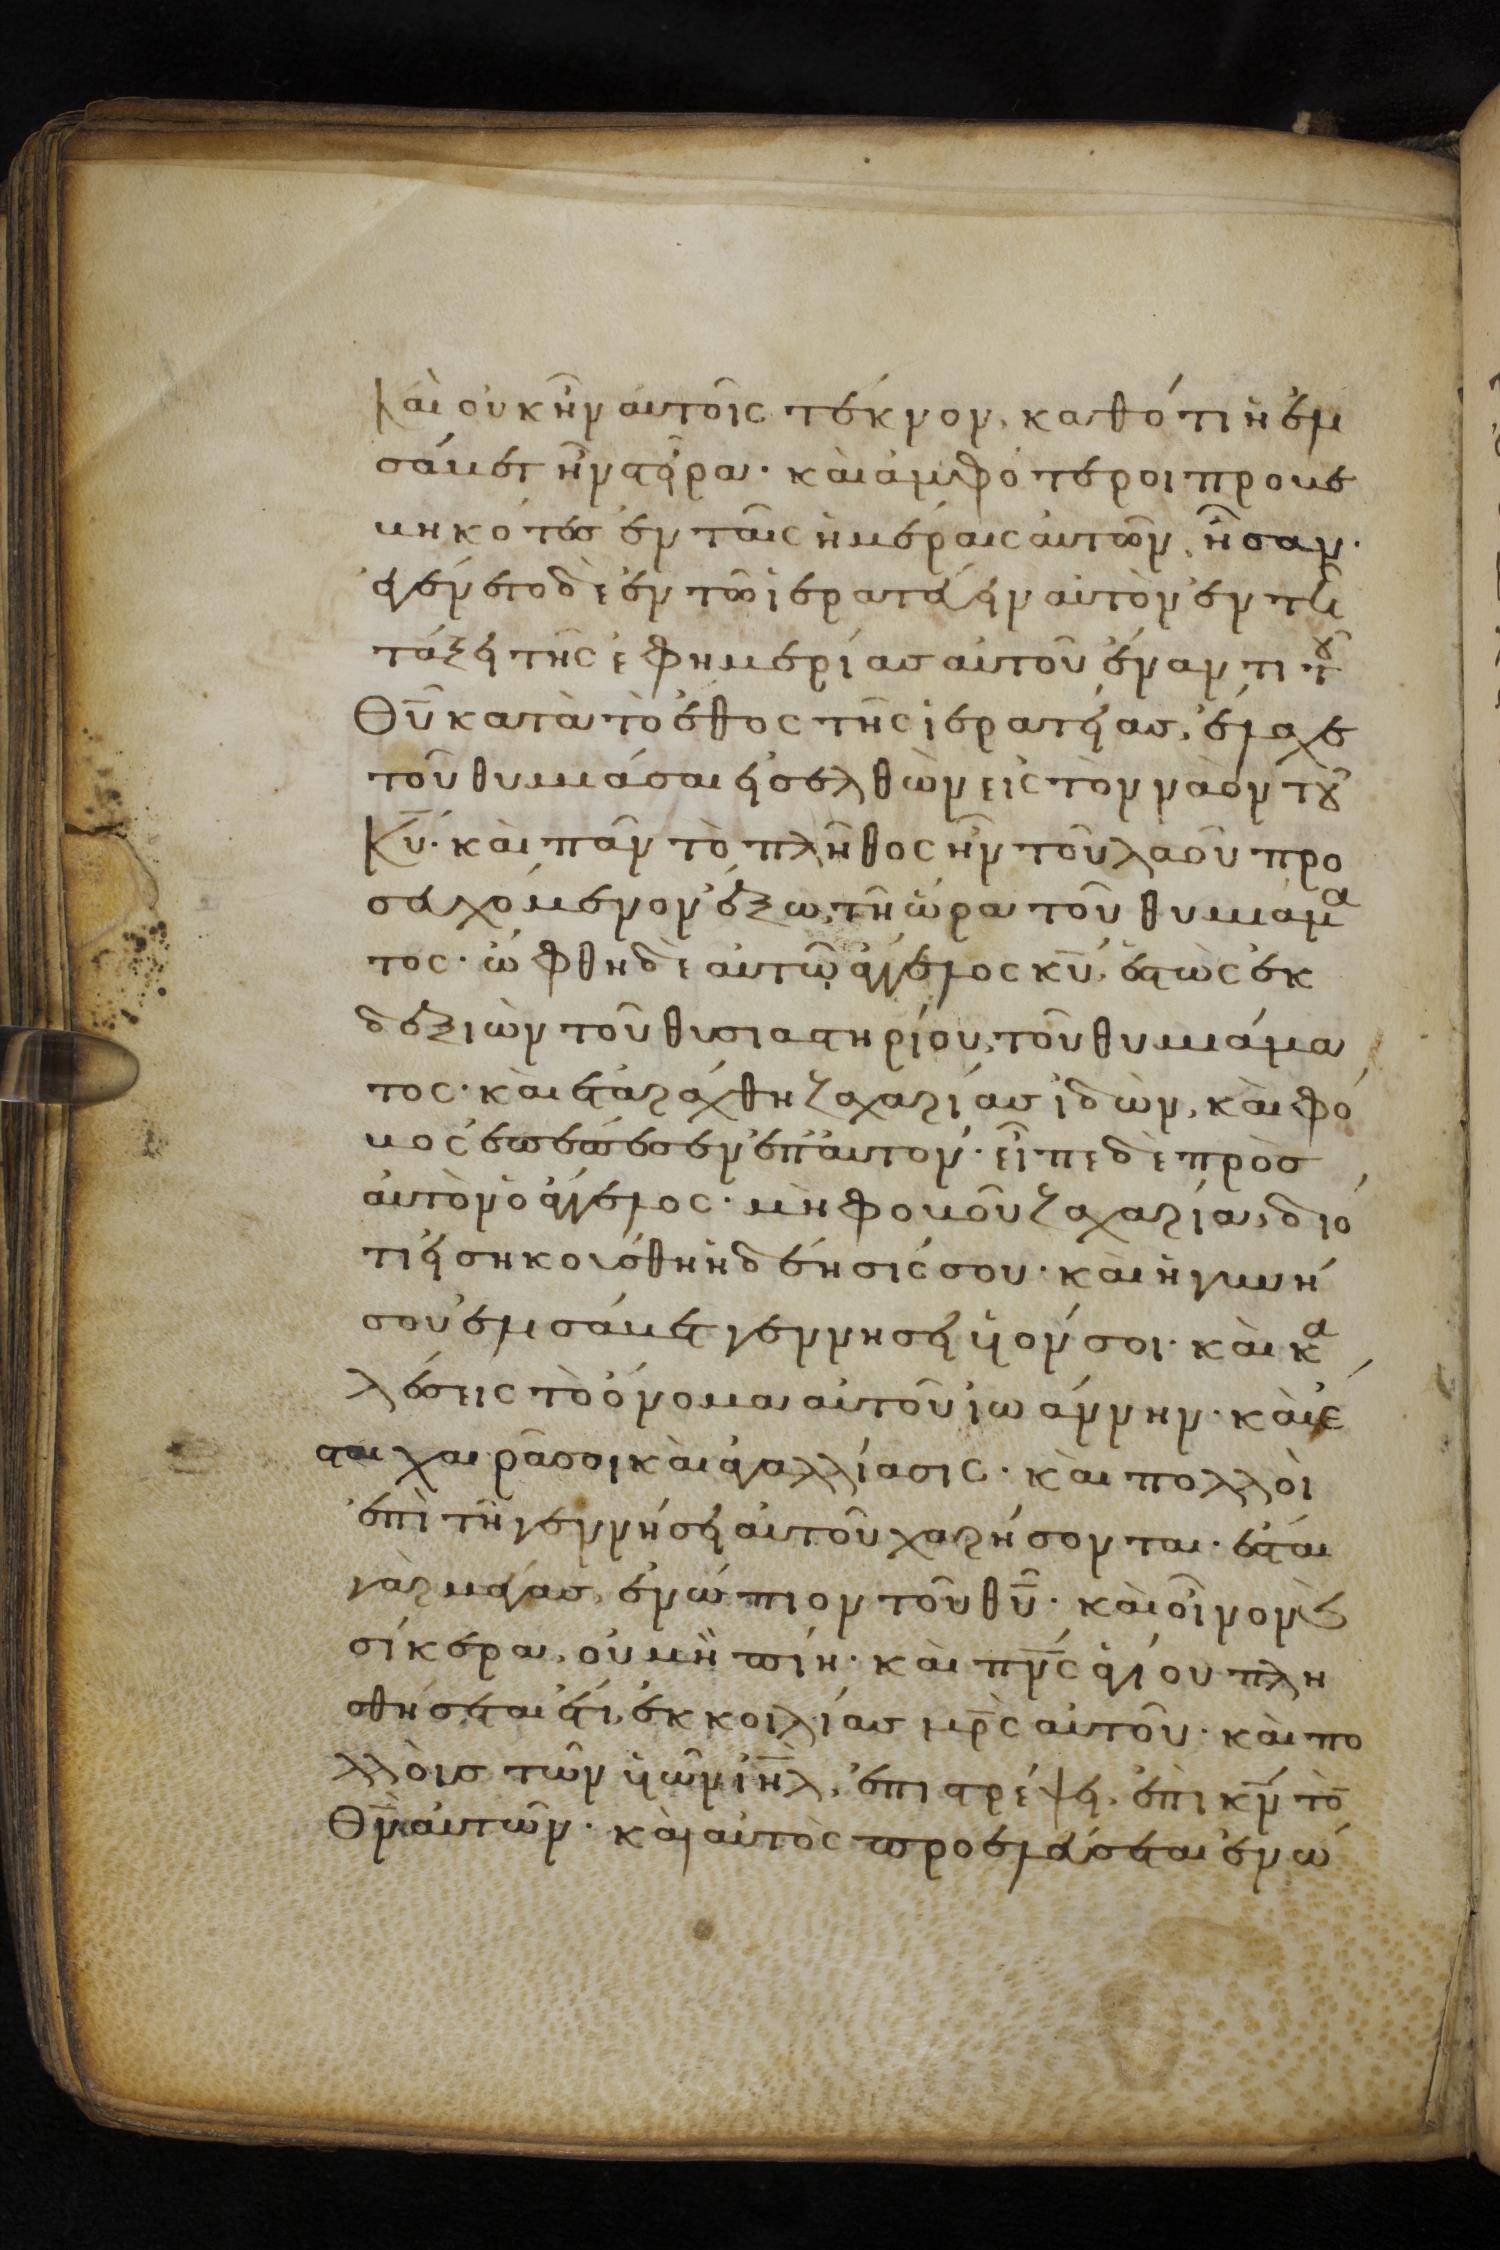 Καὶ οὐκ ἦν αὐτοῖς τέκνον, καθότι ἡ ἐλι
σάβετ ἦν στεῖρα· καὶ ἀμφότεροι προβε
βηκότες ἐν ταῖς ἡμέραις αὐτῶν ἦσαν·
ἐγένετο δὲ ἐν τῶ ἱερατεύειν αὐτὸν ἐν τῆ
τάξει τῆς ἐφημερίας αὐτοῦ ἔναντι τοῦ
Θῦ κατὰ τὸ ἔθος τῆς ἱερατείας, ἔλαχε
τοῦ θυμιάσαι εἰσελθὼν εἰς τὸν ναὸν τοῦ
Κῦ· καὶ πᾶν τὸ πλῆθος ἦν τοῦ λαοῦ προ
σευχόμενον ἔξω, τῆ ὥρα τοῦ θυμιάμα
τος· ὤφθη δὲ αὐτῶ ἄγγελος κῦ, ἑστὼς ἐκ
δεξιῶν τοῦ θυσιαστηρίου, τοῦ θυμιάμα
τος· καὶ ἐταράχθη ζαχαρίας ἰδὼν, καὶ φό
βος ἐπέπεσεν ἐπ' αὐτόν· εἶπε δὲ πρὸς
αὐτὸν ὁ ἄγγελος· μὴ φοβοῦ ζαχαρία, διό
τι εἰσηκούσθη ἡ δέησίς σου· καὶ ἡ γυνή
σου ἐλισάβετ γεννήσει υἱόν σοι· καὶ κα
λέσεις τὸ ὄνομα αὐτοῦ ἰωάννην· καὶ ἔ
σται χαρά σοι καὶ ἀγαλλίασις· καὶ πολλοὶ
ἐπὶ τῆ γεννήσει αὐτοῦ χαρήσονται· ἔσται
γὰρ μέγας, ἐνώπιον τοῦ θῦ· καὶ οἶνον καὶ
σίκερα, οὐ μὴ πίη· καὶ πνς ἁγίου πλη
σθήσεται ἔτι, ἐκ κοιλίας μρς αὐτοῦ· καὶ πο
λλοὺς τῶν υἱῶν ἰηλ, ἐπιστρέψει, ἐπὶ κν τὸν
Θν αὐτῶν· καὶ αὐτὸς προελεύσεται ἐνώ